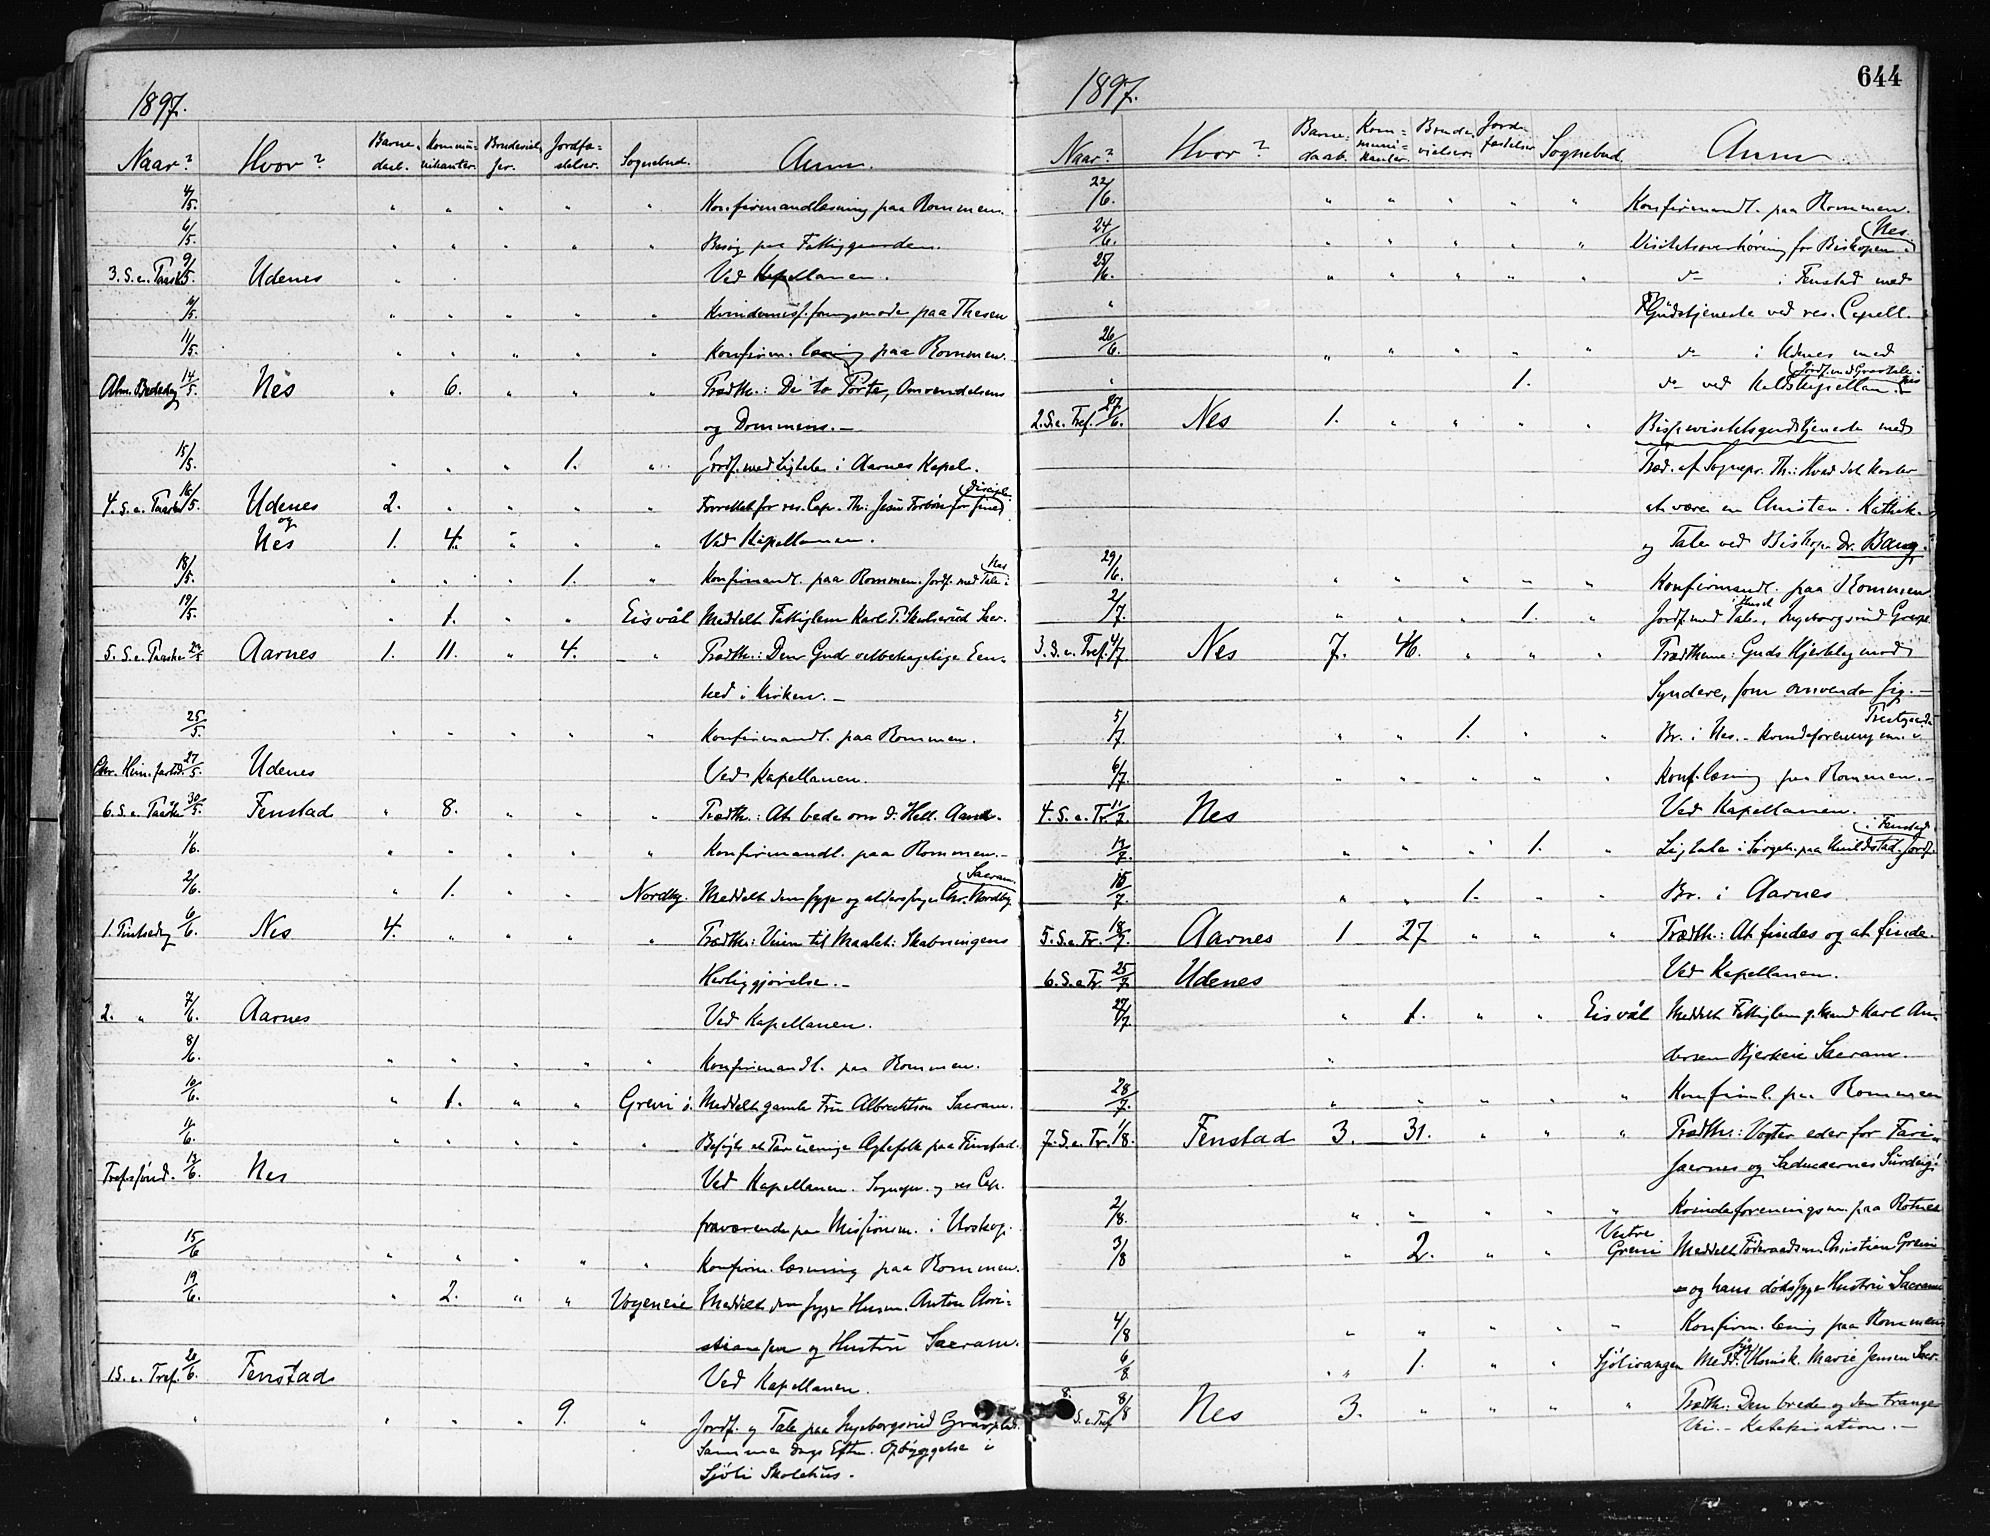 1897.
Naar? Hvor? Barne- Kommu- Brudeviel- Jordfæ- Sognebud. Anm.
daab. nikanter. ser. stelser.
4/5. " " " " " Konfirmandlæsning paa Rommen.
6/5. " " " " " Besøg paa Fattiggaarden.
3. S. e. Paaske 9/5. Udenes " Ved Kapellanen.
/5. " " " " " paa Thesen
11/5. " " " " " Konfirm. læsning paa Rommen.
Alm. Bededag 14/5. Nes " 6. " " " Prædth.: De to Porte, Omvendelsens
og Dommens. —
15/5. " " " 1. " Jordf. med Ligtale i Aarnes Kapel.
4. S. e. Paaske 16/5. Udenes 2. " " " " Forrettet for res. Cap. Th: Jesu Forbøn for sine Disciple
og
Nes 1. 4. " " " Ved Kapellanen.
18/5. " " " 1. " Konfirmandl. paa Rommen. Jordf. med Tale i Nes
19/5. " 1. " " Eisvål Meddelt Fattiglem Karl P. Skulserud Sacr.
5. S. e. Paaske 23/5 Aarnes 1. 11. " 4. " Prædth.: Den Gud velbehagelige Een-
hed i Kirken. —
25/5. " " " " " Konfirmandl. paa Rommen.
Chr. Him. fartsd. 27/5. Udenes Ved Kapellanen.
6. S. e. Paaske 30/5. Fenstad " 8. " " " Prædth.: At bede om d. Hell. Aand.
1/6. " " " " " Konfirmandl. paa Rommen. —
2/6. " 1. " " Nordby. Meddelt den syge og aldersvage Chr. Nordby Sacram.
1. Pintsedag 6/6. Nes 4. " " " " Prædth.: Veien til Maalet: Skabningens
Herliggjørelse. —
2. " 7/6. Aarnes Ved Kapellanen.
8/6. " " " " " Konfirmandl. paa Rommen.
10/6. " 1. " " Greni ø. Meddelt gamle Fru Albrechtson Sacram.
/6. " " " " " Besøgt et Par uenige Ægtefolk paa Finstad.
Trefs. sønd. 13/6. Nes Ved Kapellanen. Sognepr. og res Cap.
fraværende paa Missionsm. i Urskog.
15/6 " " " " " Konfirm. læsning paa Rommen.
19/6. " 2. " " Vogeneie Meddelt den syge Husm. Anton Chri-
stiansen og Hustru Sacram.
1 S. e. Tref. 20/6. Fenstad Ved Kapellanen.
" " " " 9. " Jordf. og Tale paa Ingeborgsrud Gravplads.
Samme Dags Eftm. Opbyggelse i
Sjøli Skolehus. —
1897. 644
Naar? Hvor? Barne- Kom- Brude- Jorde- Sognebud Anm
daab. muni- vielser fæstelser
kanter.
22/6. " " " " " Konfirmandl. paa Rommen.
24/6. " " " " " Visitatsoverhøring for Biskopen i Nes.
25/6. " " " " " do i Fenstad med
" Gudstjeneste ved res. Capell.
26/6. " " " " " do i Udenes med
" 1. do ved Kapellan. Jordf. med Gravtale i Nes
2. S. e. Tref. 27/6. Nes 1. " " " " Bispevisitatsgudstjeneste med
Præd. af Sognepr. Th.: Hvad det koster
at være en Christen. Kathek.
og Tale ved Biskop Dr. Bang.
29/6. " " " " " Konfirmandl. paa Rommen
2/7. " " " 1. " Jordf. med Tale i Huset, Ingeborgsrud Gravpl.
3. S. e. Tref. 4/7. Nes 7. 46. " " " Prædthema: Guds Kjærlighed mod
Syndere, som omvender sig. —
5/7. 1. " " Br. i Nes. — Kvindeforening i
6/7. " " " " " Konf. læsning paa Rommen. —
4. S. e. Tr. 11/7. Nes Ved Kapellanen.
13/7. " " " 1. " Ligtale i Sørgeh. paa Jordf. i Fenstad.
15/7. " " 1. " " Br. i Aarnes.
5. S. e. Tr. 18/7. Aarnes 1 27 " " " Prædth.: At findes og at finde.
6. S. e. Tr. 25/7 Udenes Ved Kapellanen.
27/7. " 1. " " Eisvål Meddelt Fattiglem g. Mand Karl An-
" dersen Bjerkeie Sacram.
28/7. " " " " " Konfirml. paa Rommen
7. S. e. Tr. 1/8. Fenstad 3. 31. " " " Prædth.: Vogter eder for Fari-
sæernes og Saducæernes Surdeig!
2/8. " " " " " Kvindeforeningsm. paa Rotnes
3/8 " 2. " " Vestre Greni Meddelt Føderaadsm. Christian Greni
og hans dødssyge Hustru Sacram
4/8 " " " " " Konfirm. læsning paa Rommen
6/8. " 1. " " Sjølivangen Medd. Marie Jensen Sacr.
8. S. e. Tref 8/8 Nes 3. " " " " Prædth: Den brede og den trange
Vei. — Katekisation. —